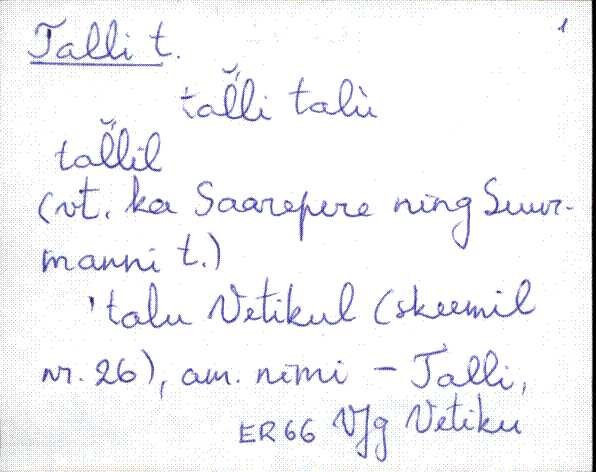 1
Talli t.
tal̆̀li talù
tal̆̀lil
(vt. ka Saarepere ning Suur-
manni t.)
'talu Vetikul (skeemil
nr. 26), am. nimi – Talli,
ER66 VJg Vetiku